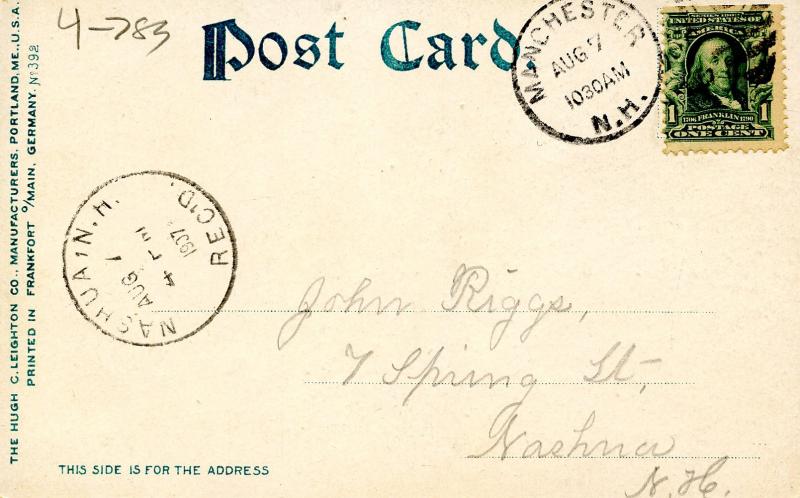 4-783
Post Card.
MANCHESTER
AUG 7
1030AM
N.H.
SERIES 1902
UNITED STATES OF
AMERICA
1 1706 FRANKLIN 1790 1
POSTAGE
ONE CENT
THE HUGH C. LEIGHTON CO., MANUFACTURERS, PORTLAND, ME., U.S.A.
PRINTED IN FRANKFORT o/MAIN, GERMANY. No 392
NASHUA, N.H.
AUG 7
4
1907
REC'D.
John Riggs,
7 Spring St,
Nashua
N.H.
THIS SIDE IS FOR THE ADDRESS